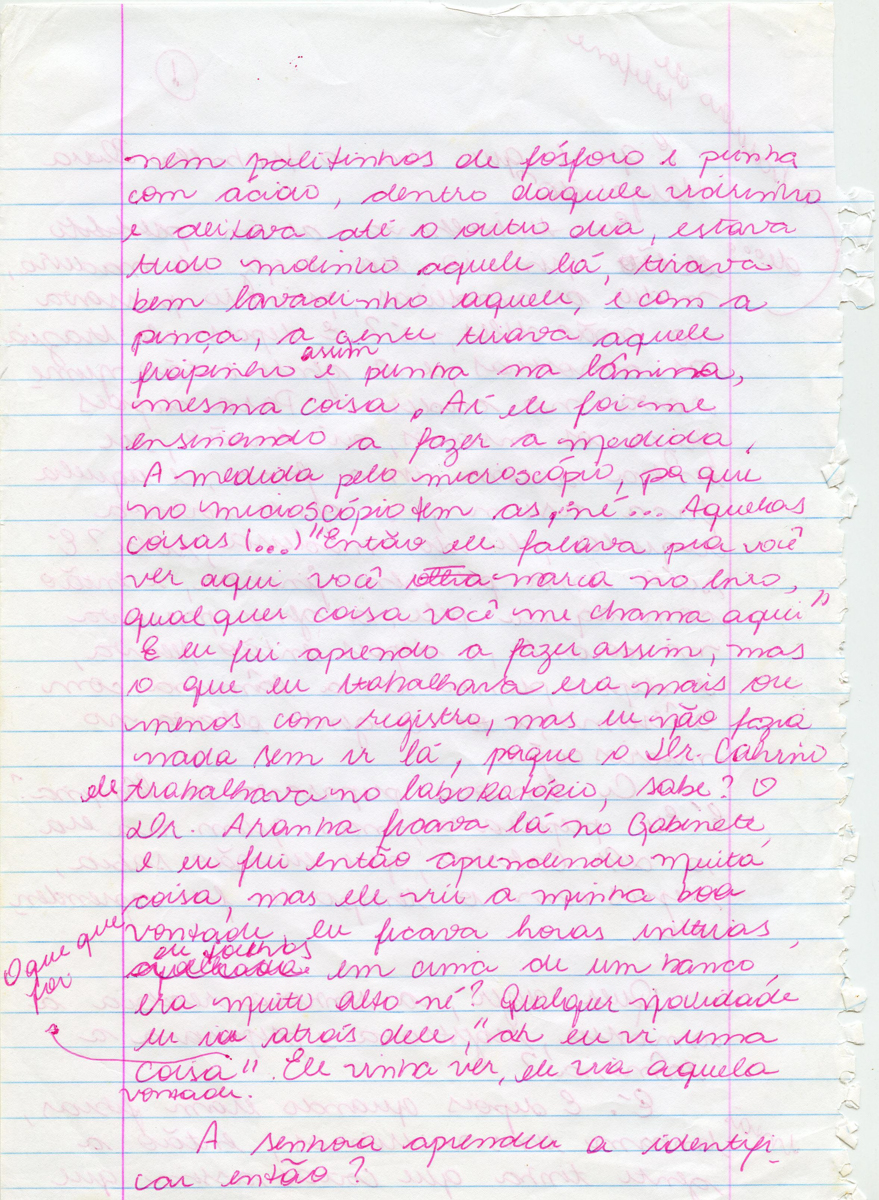 nem palitinhos de fósforo e punha
com ácido, dentro daquele vidrinho
e deitava até o outro dia, estava
tudo molinho aquele lá, tirava
bem lavadinho aquele, e com a
pinça, a gente tirava aquele
fiapinho assim e punha na lâmina,
mesma coisa. Aí ele foi me
ensinando a fazer a medida.
A medida pelo microscópio, pq que
no microscópio tem as, né... Aquelas
coisas (...) "Então ele falava pra você
ver aqui você marca no livro,
qualquer coisa você me chama aqui"
E eu fui aprendo a fazer assim, mas
o que eu trabalhava era mais ou
menos com registro, mas eu não fazia
nada sem ir lá, porque o Dr.
ele trabalhava no laboratório, sabe? O
Dr. Aranha ficava lá no Gabinete,
e eu fui então aprendendo muita
coisa, mas ele viu a minha boa
vontade, eu ficava horas inteiras,
em cima de um banco,
era muito alto né? Qualquer novidade
eu ia atrás dele, "ah eu vi uma
coisa". Ele vinha ver, ele via aquela
vontade.
O que que
for
A senhora aprendeu a identifi-
car então?